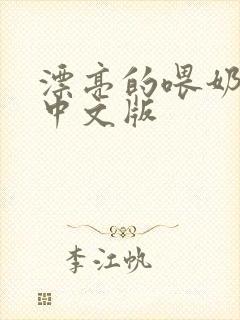 漂亮的喂奶
中文版
李江帆